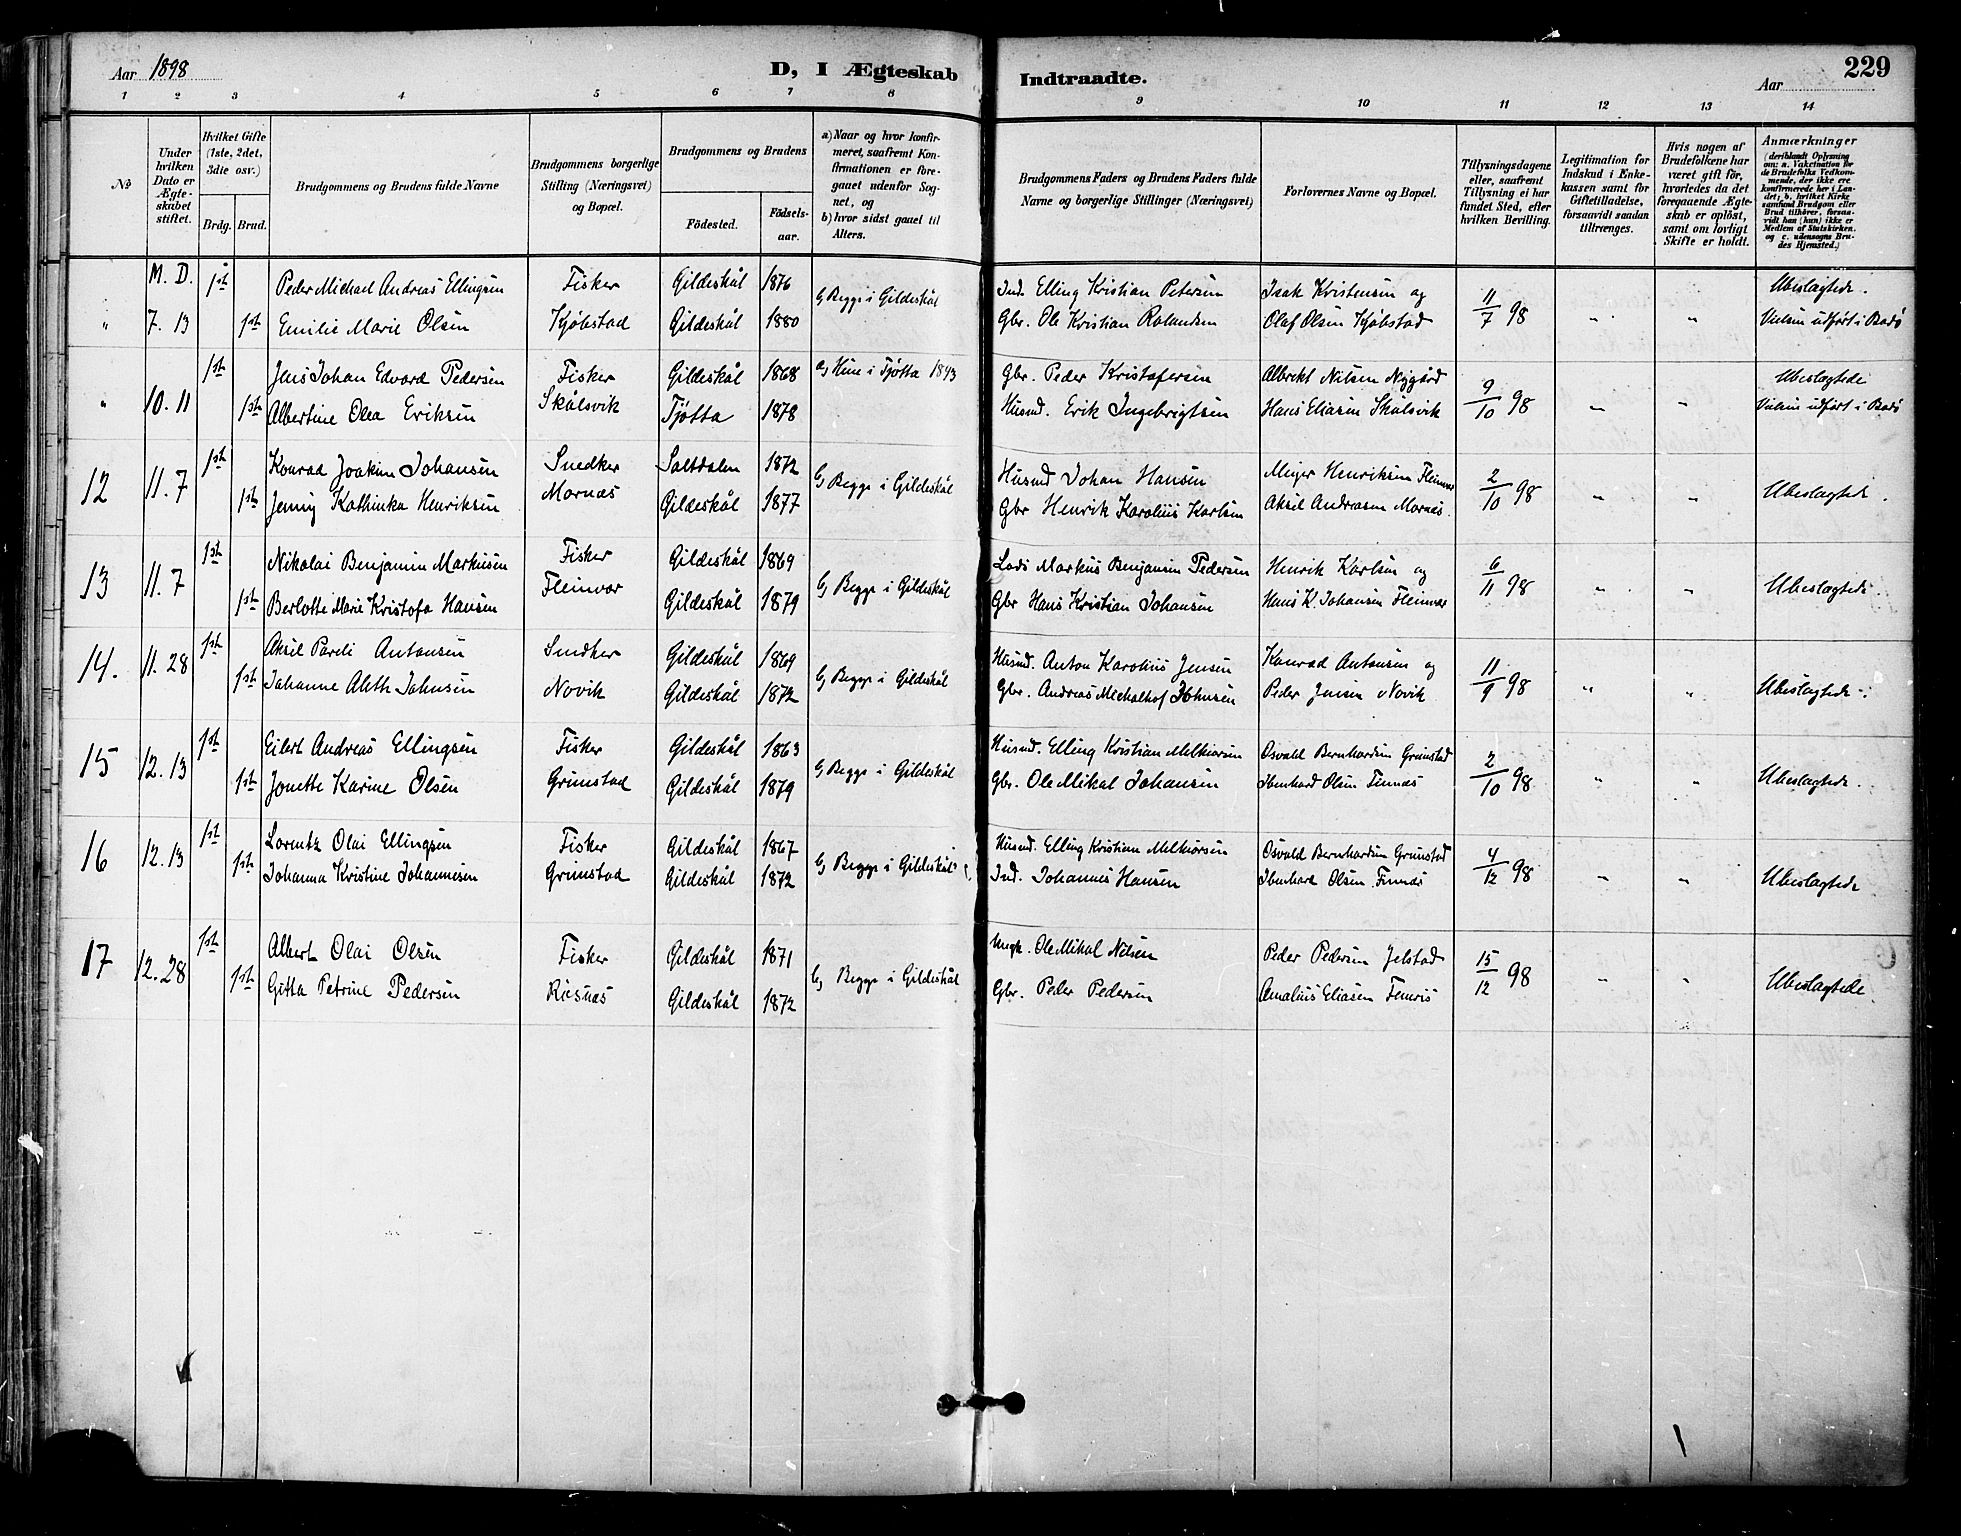 Aar 1898 D, I Ægteskab Indtraadte. Aar 229
1 2 3 4 5 6 7 8 9 10 11 12 13 14
No
Under hvilken Dato er Ægteskabet stiftet.
Hvilket Gifte (1ste, 2det, 3die osv.)
Brdg. Brud.
Brudgommens og Brudens fulde Navne
Brudgommens borgerlige Stilling (Næringsvei) og Bopæl.
Brudgommens og Brudens
Fødested. Fødselsaar.
a) Naar og hvor konfirmeret, saafremt Konfirmationen er foregaaet udenfor Sognet, og
b) hvor sidst gaaet til Alters.
Brudgommens Faders og Brudens Faders fulde Navne og borgerlige Stillinger (Næringsvei)
Forlovernes Navne og Bopæl.
Tillysningsdagene eller, saafremt Tillysning ei har fundet Sted, efter hvilken Bevilling.
Legitimation for Indskud i Enkekassen samt for Giftetilladelse, forsaavidt saadan tiltrænges.
Hvis nogen af Brudefolkene har været gift før, hvorledes da det foregaaende Ægteskab er opløst, samt om lovligt Skifte er holdt.
Anmærkninger
(deriblandt Oplysning om: a. Vakcination for de Brudefolks Vedkommende, der ikke ere konfirmerede her i Landet; b. hvilket Kirkesamfund Brudgom eller Brud tilhører, forsaavidt han (hun) ikke er Medlem af Statskirken, og c. udensogns Brudes Hjemsted.)
M. D. 1st Peder Michael Andreas Ellingsen Fisker Gildeskål 1876 b) Begge i Gildeskål Ind. Elling Kristian Petersen Isak Kristensen og 11/7 98 Ubeslægtede.
" 7. 13 1st Emilie Marie Olsen Kjøbstad Gildeskål 1880 Gbr. Ole Kristian Rolandsen Olaf Olsen Kjøbstad " " Vielsen udført i Bodø
1st Jens Johan Edvard Pedersen Fisker Gildeskål 1868 a) Hun i Tjøtta 1893 Gbr. Peder Kristofersen Albrekt Nilsen Nygård 9/10 98 Ubeslægtede
" 10. 11 1st Albertine Olea Eriksen Skålsvik Tjøtta 1878 Husmd. Erik Ingebrigtsen Hans Eliasen Skålsvik " " Vielsen udført i Bodø
12 11. 7 1st Konrad Joakim Johansen Snedker Saltdalen 1872 b) Begge i Gildeskål Husmd Johan Hansen Meyer Henriksen Fleinvær 2/10 98 Ubeslægtede.
1st Jenny Kathinka Henriksen Mornæs Gildeskål 1877 Gbr Henrik Karolius Karlsen Aksel Andreasen Mornæs. " "
13 11. 7 1st Nikolai Benjamin Markusen Fisker Gildeskål 1869 b) Begge i Gildeskål Markus Benjamin Pedersen Henrik Karlsen og 6/11 98 Ubeslægtede
1st Berlotte Marie Kristofa Hansen Fleinvær Gildeskål 1879 Gbr Hans Kristian Johansen Hans K. Johansen Fleinvær " "
14. 11. 28 1st Aksel Pareli Antonsen Snedker Gildeskål 1869 b) Begge i Gildeskål Husmd. Anton Karolius Jensen Konrad Antonsen og 11/9 98 Ubeslægtede
1st Johanne Aleth Johnsen Novik Gildeskål 1872 Gbr. Andreas Johnsen Peder Jensen Novik " "
15 12. 13 1st Eilert Andreas Ellingsen Fisker Gildeskål 1863 b) Begge i Gildeskål Husmd. Elling Kristian Melkiorsen Osvald Bernhardsen Grimstad 2/10 98 Ubeslægtede.
1st Jonette Karine Olsen Grimstad Gildeskål 1879 Gbr. Ole Mikal Johansen Ibenhard Olsen Finnæs " "
16 12. 13 1st Lorentz Olai Ellingsen Fisker Gildeskål 1867 b) Begge i Gildeskål Husmd. Elling Kristian Melkiorsen Osvald Bernhardsen Grimstad 4/12 98 Ubeslægtede
1st Johanna Kristine Johannesen Grimstad Gildeskål 1872 Ind. Johannes Hansen Ibenhard Olsen Finnæs " "
17 12. 28 1st Albert Olai Olsen Fisker Gildeskål 1871 b) Begge i Gildeskål Ole Mikal Nilsen Peder Pedersen Jelstad 15/12 98 Ubeslægtede
1st Gitta Petrine Pedersen Risnæs Gildeskål 1872 Gbr. Peder Pedersen Amalius Eliasen " "